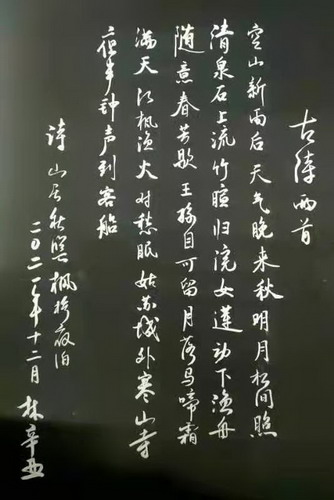 古诗两首
空山新雨后天气晚来秋明月松间照
清泉石上流竹喧归浣女莲动下渔舟
随意春芳歇王孙自可留月落乌啼霜
满天江枫渔火对愁眠姑苏城外寒山寺
夜半钟声到客船
诗 山居秋暝 枫桥夜泊
二〇二一年十二月 林辛丑